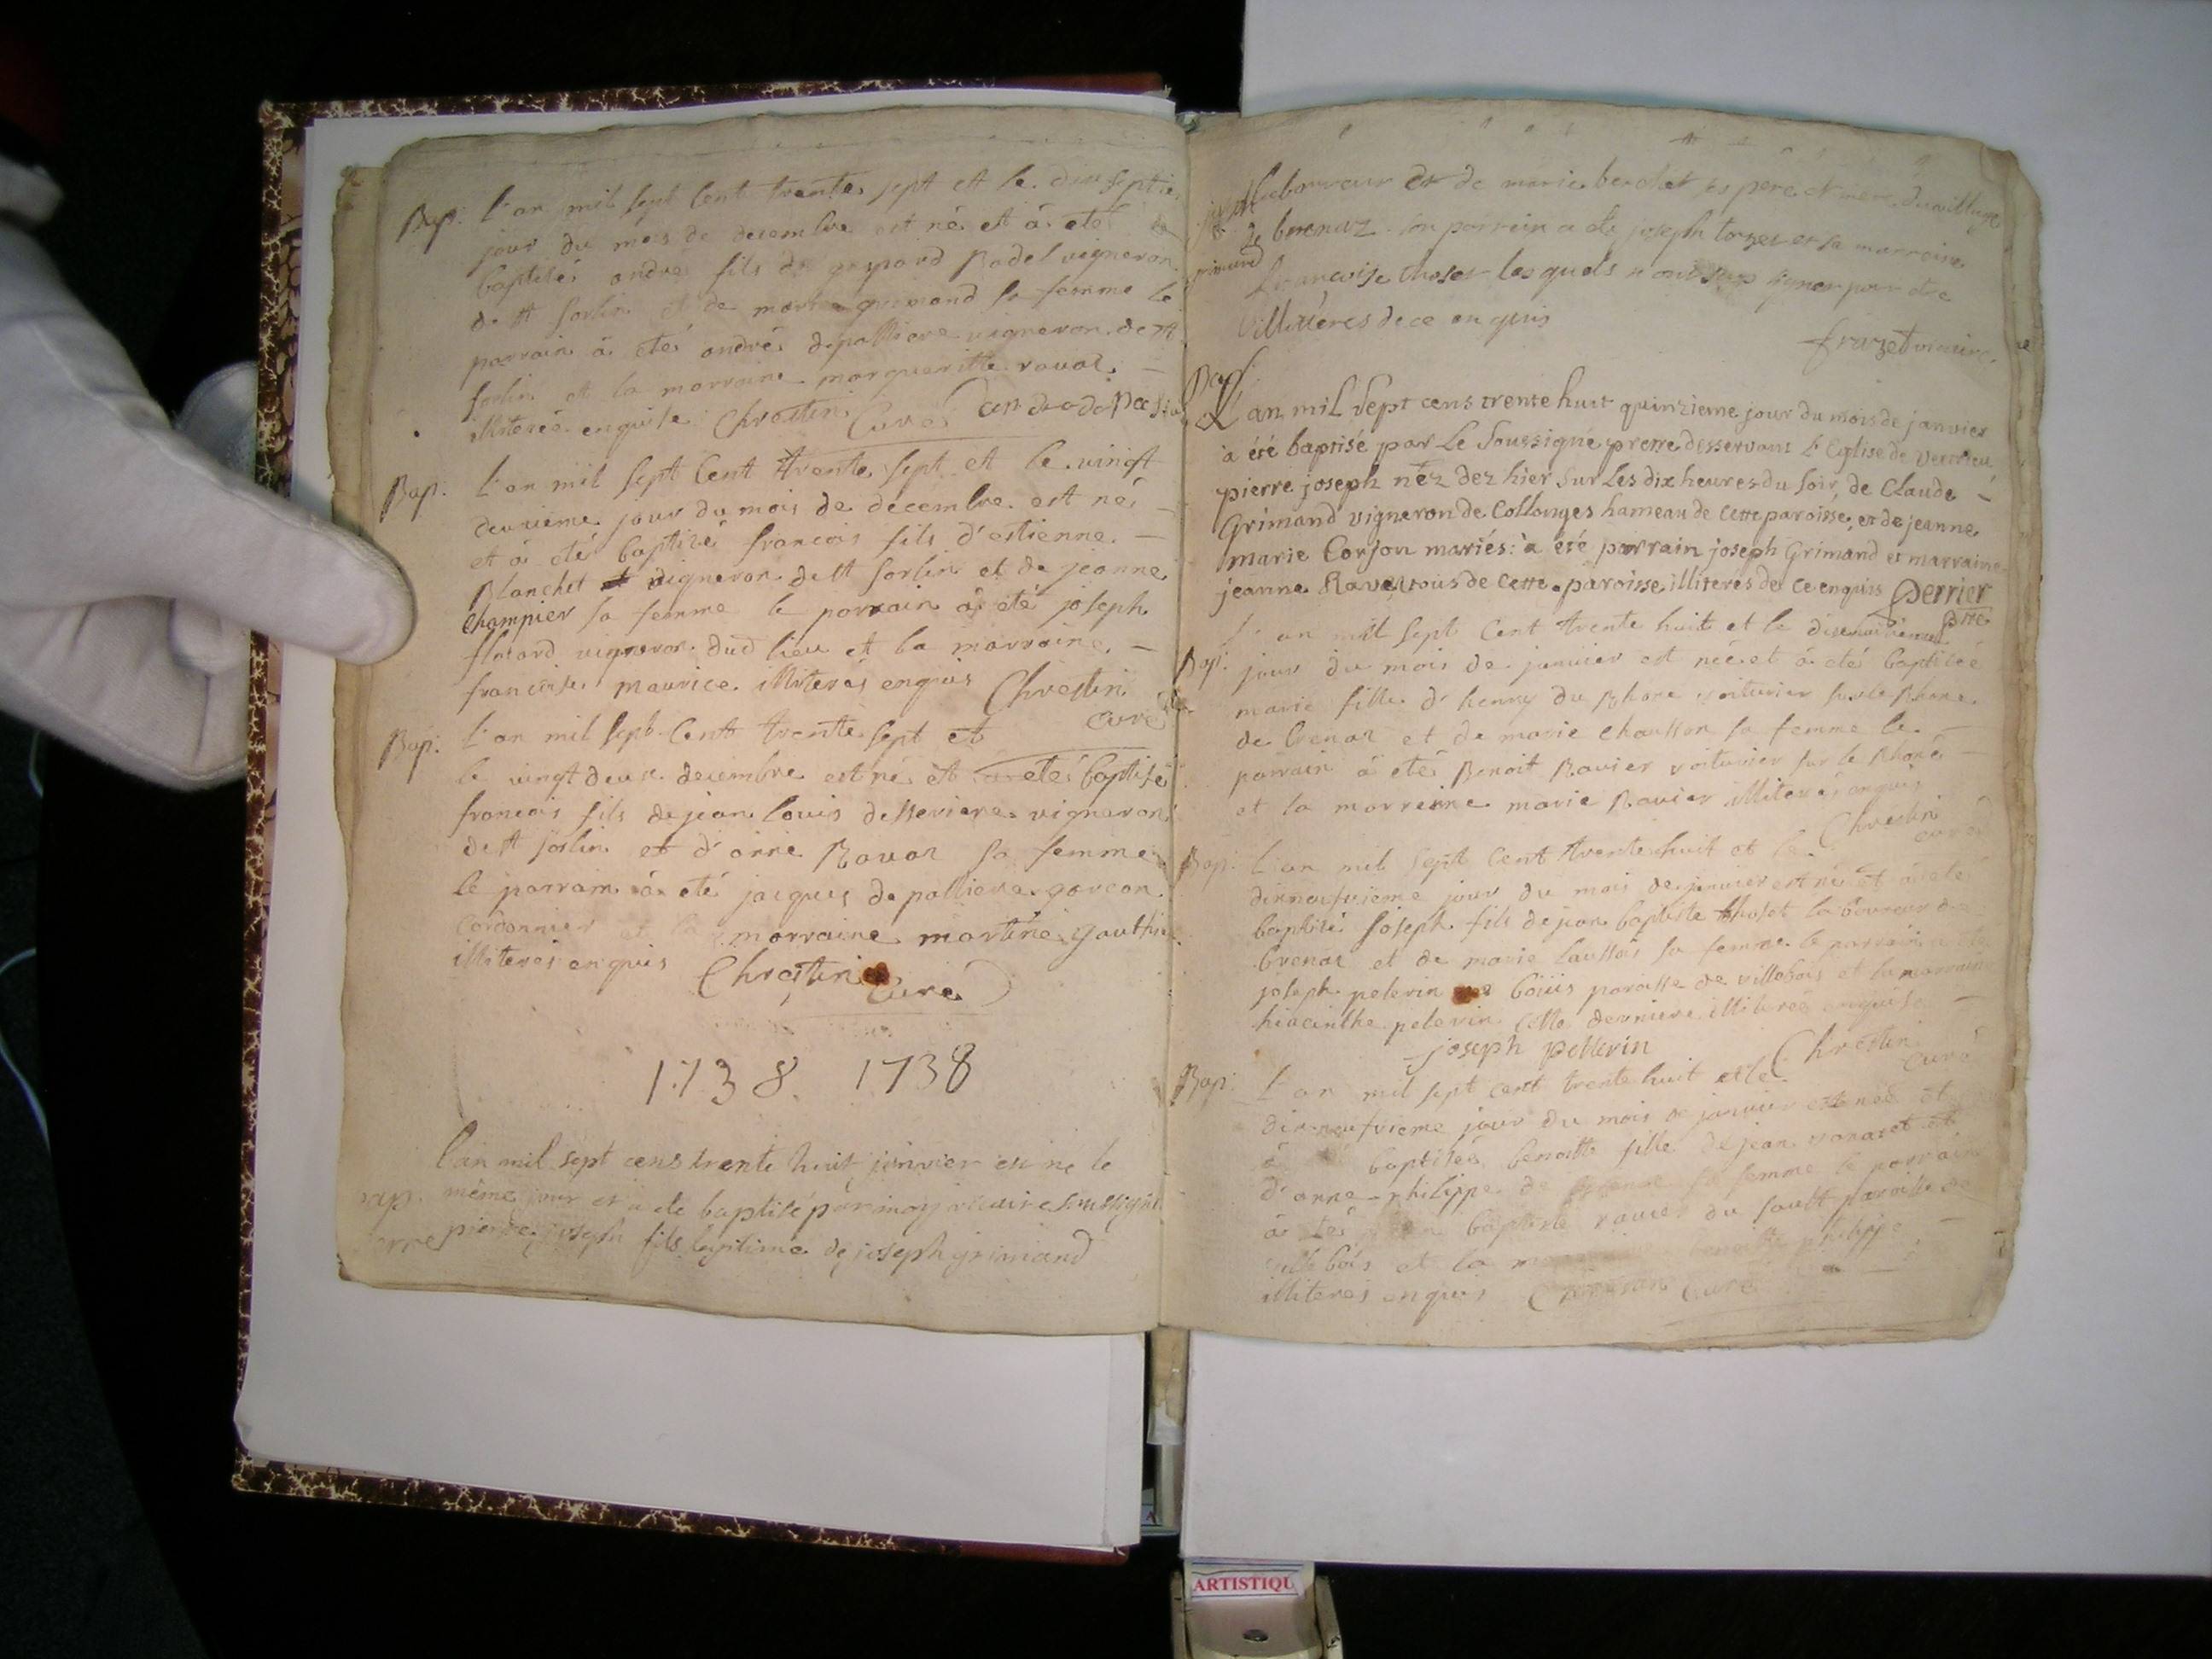 Bap. L'an mil sept cent trente sept et le dix septie
jour du mois de decembre est né et à eté
baptisé andré fils de gaspard Badel vigneron
de st sorlin et de marie grimand sa femme le
parrain à eté andré depalliere vigneron de st
sorlin et la marraine margueritte ravat
illiterée enquise Chrestin Curé
Bap. L'an mil sept cent trente sept et le vingt
deuxieme jour du mois de decembre est né
et à eté baptisé francois fils d'estienne
Blanchet vigneron de st sorlin et de jeanne
Champier sa femme le parrain à eté joseph
flotard vigneron dud lieu et la marraine
francoise maurice illiterés enquis Chrestin
curé
Bap. L'an mil sept cent trente sept et
le vingt deux decembre est né et a eté baptisé
francois fils de jean louis desseriere vigneron
de st sorlin et d'anne Ravat sa femme
le parrain à eté jacques de palliere garcon
cordonnier et la marraine martine gauthie
illiterés enquis Chrestin
Curé
1738. 1738
l'an mil sept cens trente huit janvier est né le
bap. même jour et a ete baptisé par moy vicaire soussigné
pierre joseph fils legitime de joseph grimand
labourreur et de marie berolet ses père et mere du village
de brenaz son parrain a ete joseph et sa marraine
francoise thoset lesquels n'ont signer par ete
illitères de ce enquis
vicaire
Bap.
L'an mil Sept cens trente huit quinzieme jour du mois de janvier
a été baptisé par Le Soussigné pretre desservant L'Eglise de vertrieu
pierre joseph néz dez hier Sur Les dix heures du Soir, de Claude
Grimand vigneron de Collonges hameau de Cette paroisse, et de jeanne
marie Corjon mariés: a été parrain joseph Grimand et marraine
jeanne Ravet tous de Cette paroisse illiterés de ce enquis Perrier
ptre
L'an mil sept cent trente huit et le
Bap. jour du mois de janvier est née et à eté baptisée
marie fille d'henry du Rhone voiturier sur le Rhone
de brenaz et de marie Chausson sa femme le
parrain à eté Benoit Ravier voiturier sur le Rhone
et la marreine marie Ravier illiterés enquis
Chrestin
curé
Bap. L'an mil sept cent trente huit et le
dixneufvieme jour du mois de janvier est né et a eté
baptisé joseph fils de jean baptiste thoset laboureur de
brenaz et de marie sa femme le parrain a eté
joseph pelerin de boüis paroisse de villebois et la marraine
hiacinthe pelerin cette derniere illiterée enquise
joseph pellerin Chrestin
curé
Bap. L'an mil sept cent trente huit et le
dixneufvieme jour du mois de janvier est née et
à baptisée benoitte fille de jean et
d'anne philippe de sa femme le parrain
à eté baptiste ravier du sault paroisse de
ville bois et la benoitte philippe
illiterés enquis Chrestin Curé
ARTISTIQU